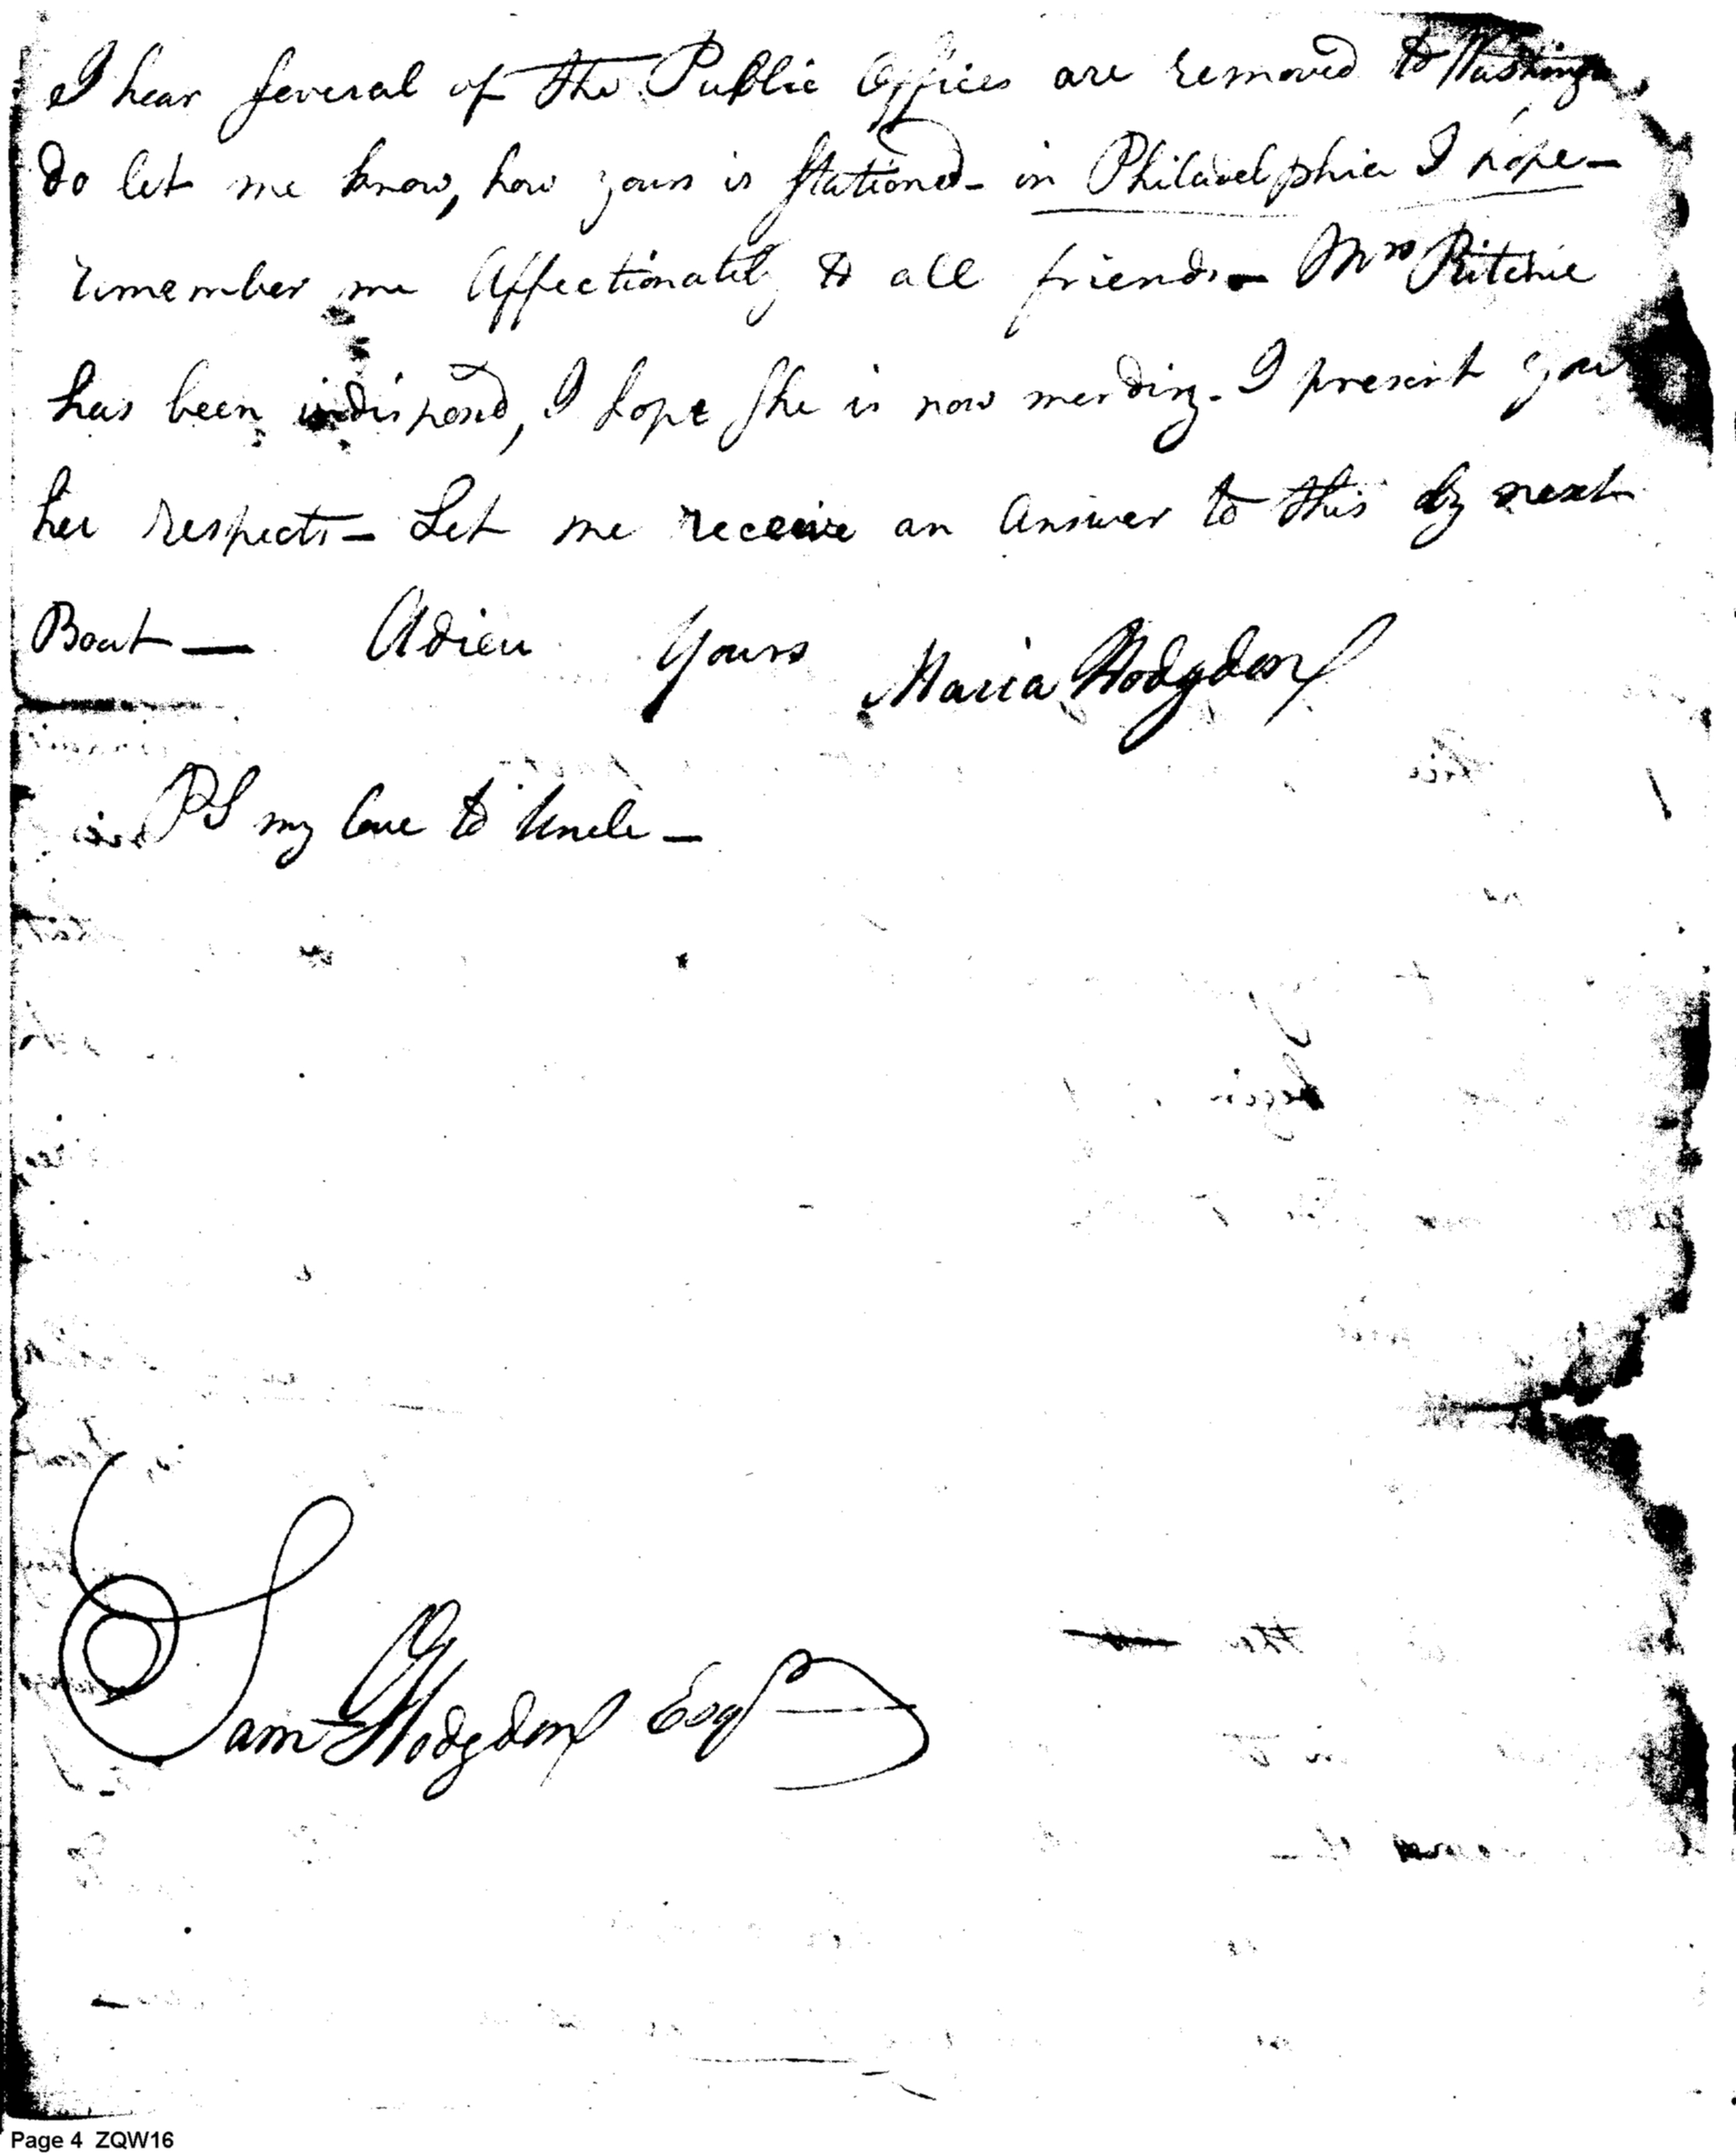 I hear several of the Public Offices are removed to Washing
do let me know, how yours is stationed - in Philadelphia I hope -
remember me Affectionately to all friends - Mrs Ritchie
has been indisposd, I hope she is now mending - I present you
her respects - Let me receive an Answer to this by next
Boat — Adieu Yours Maria Hodgdon
PS my love to Uncle -
Sam Hodgdon Esqr
Page 4 ZQW16